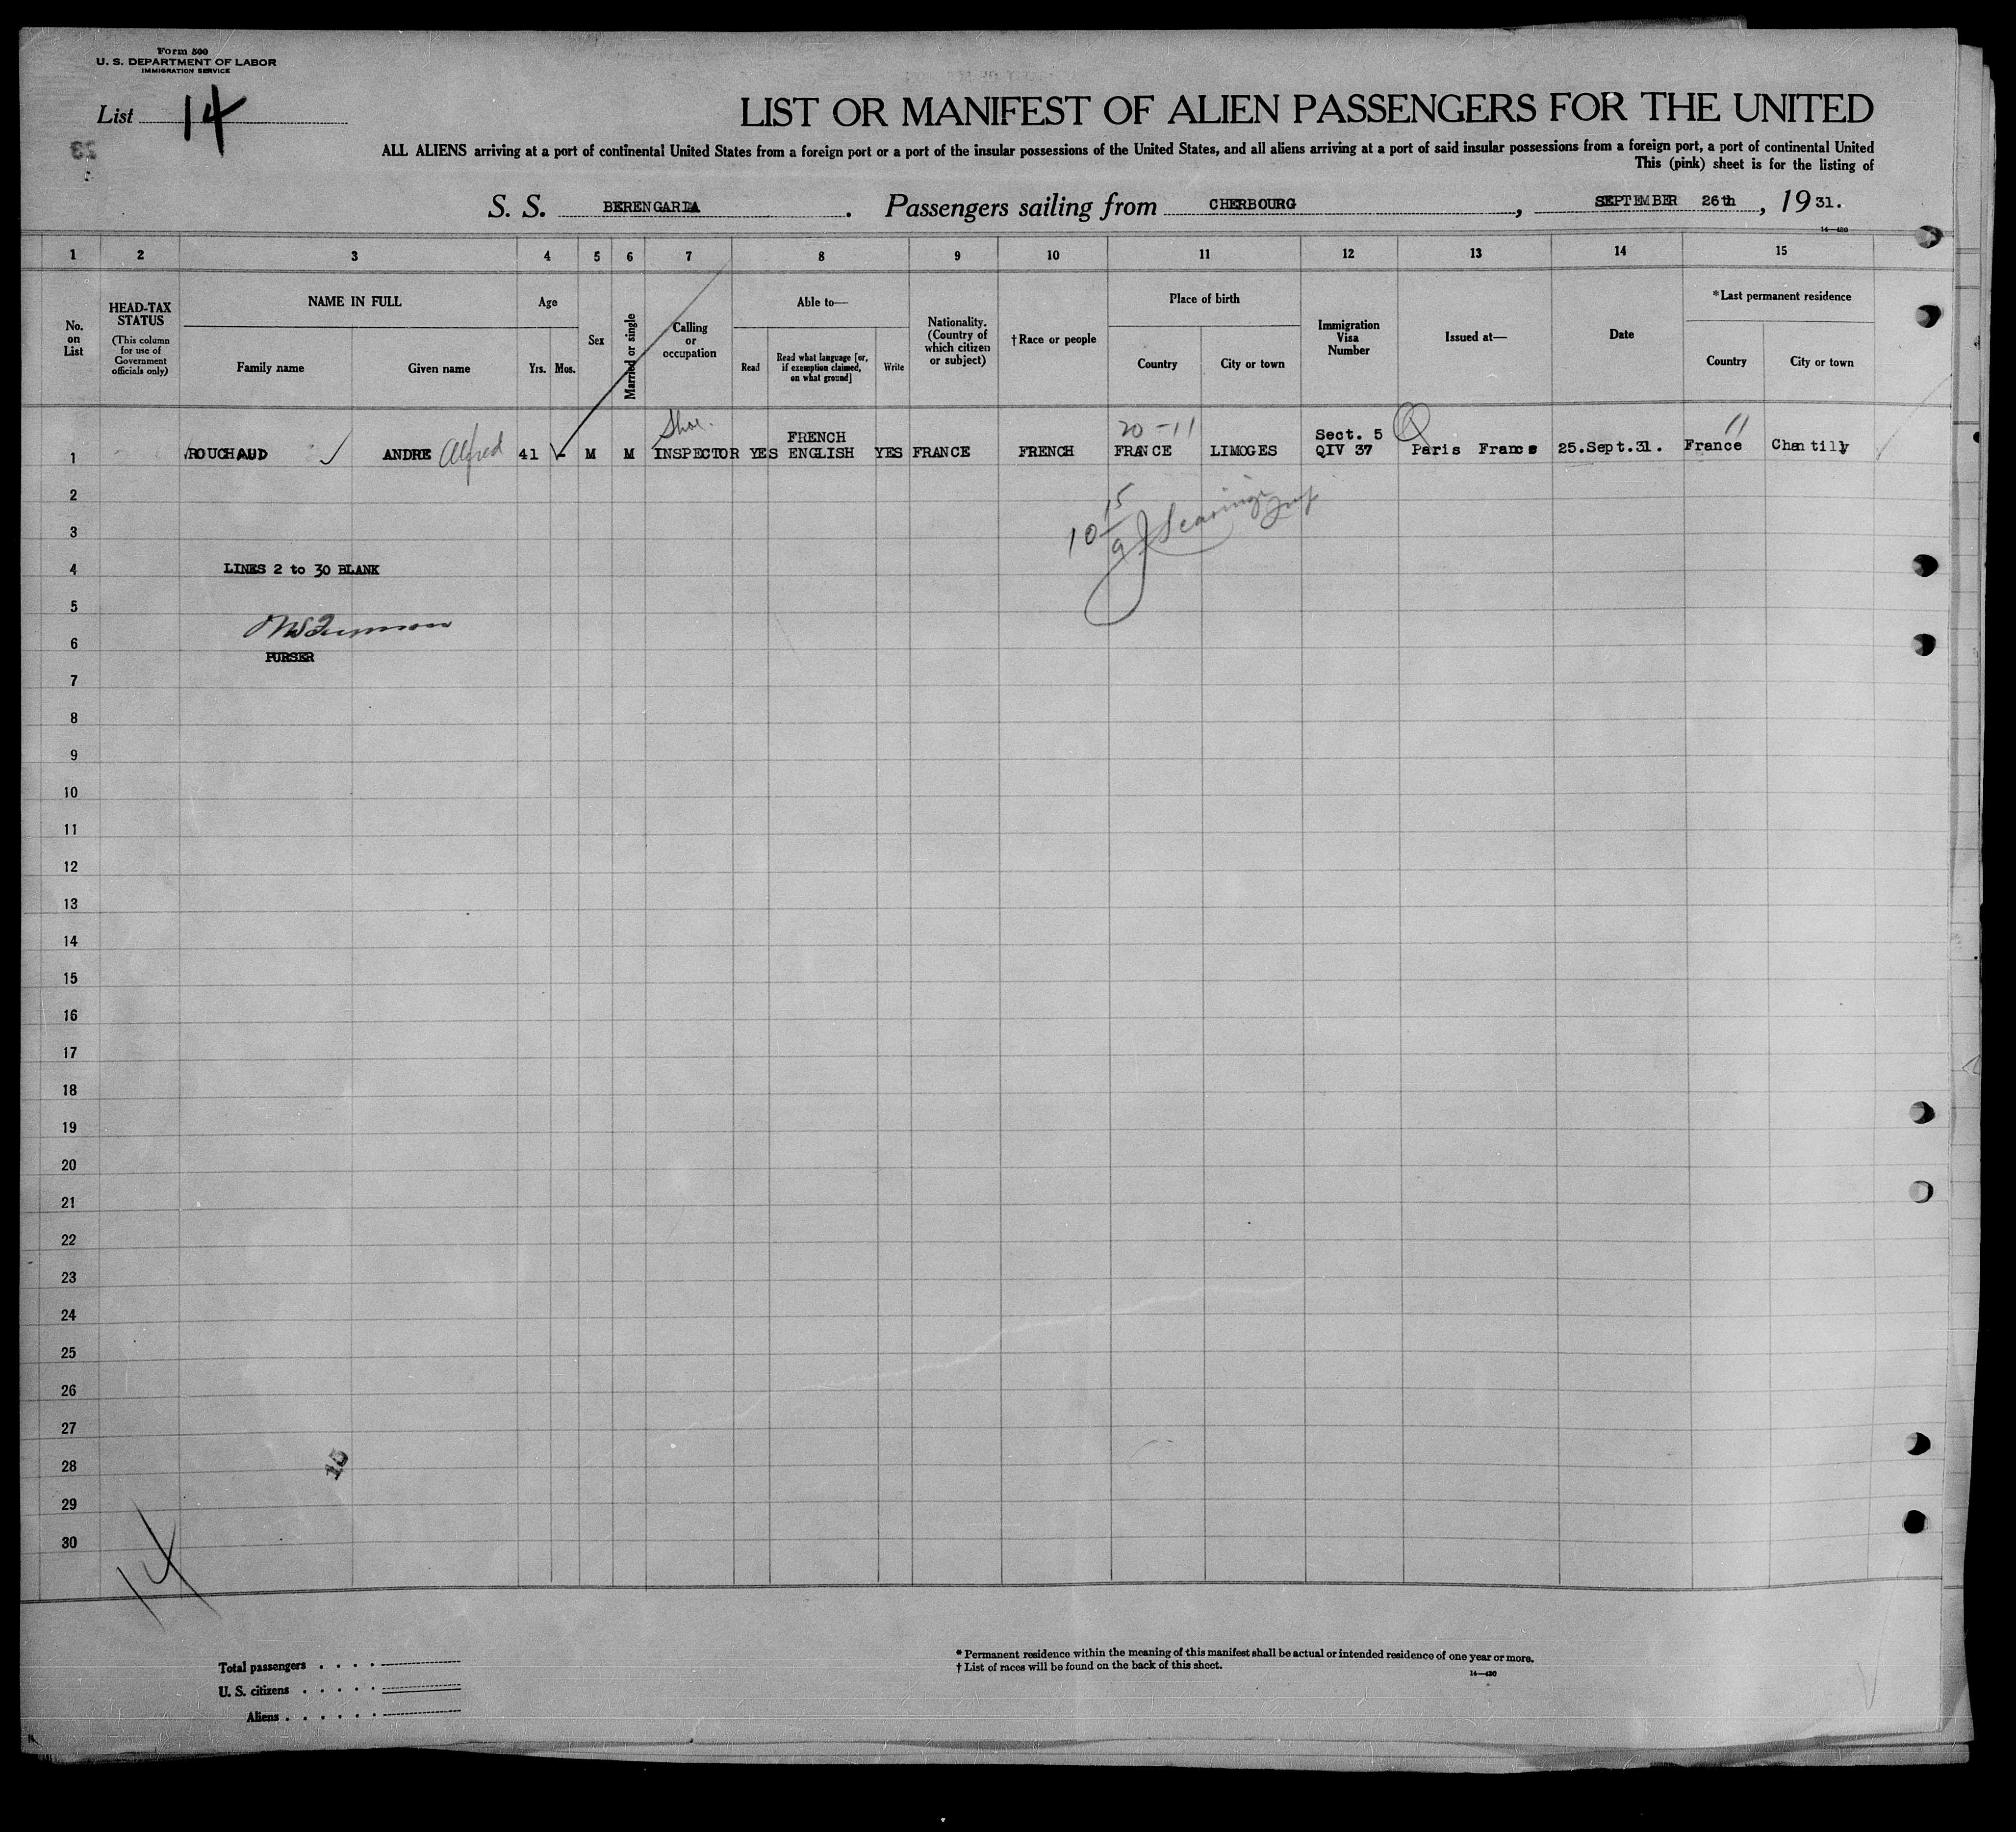 Form 500
U. S. DEPARTMENT OF LABOR
IMMIGRATION SERVICE
List 14
LIST OR MANIFEST OF ALIEN PASSENGERS FOR THE UNITED
ALL ALIENS arriving at a port of continental United States from a foreign port or a port of the insular possessions of the United States, and all aliens arriving at a port of said insular possessions from a foreign port, a port of continental United
This (pink) sheet is for the listing of
S. S. BERENGARIA. Passengers sailing from CHERBOURG, SEPTEMBER 26th, 19 31.
14—420
1 2 3 4 5 6 7 8 9 10 11 12 13 14 15
No. on List
HEAD-TAX STATUS
(This column for use of Government officials only)
NAME IN FULL
Family name Given name
Age
Yrs. Mos.
Sex
Married or single
Calling or occupation
Able to—
Read
Read what language [or, if exemption claimed, on what ground]
Write
Nationality. (Country of which citizen or subject)
†Race or people
Place of birth
Country City or town
Immigration Visa Number
Issued at—
Date
*Last permanent residence
Country City or town
Shoe. 20-11 11
FRENCH Sect. 5
1 ROUCHAUD ANDRE Alfred 41 - M M INSPECTOR YES ENGLISH YES FRANCE FRENCH FRANCE LIMOGES QIV 37 Paris France 25.Sept.31. France Chantilly
2
15
10
9
3
4 LINES 2 to 30 BLANK
5
6
PURSER
7
8
9
10
11
12
13
14
15
16
17
18
19
20
21
22
23
24
25
26
27
28 15
29
30
14
Total passengers . . . .
U. S. citizens . . . . .
Aliens . . . . . .
* Permanent residence within the meaning of this manifest shall be actual or intended residence of one year or more.
† List of races will be found on the back of this sheet.
14—420